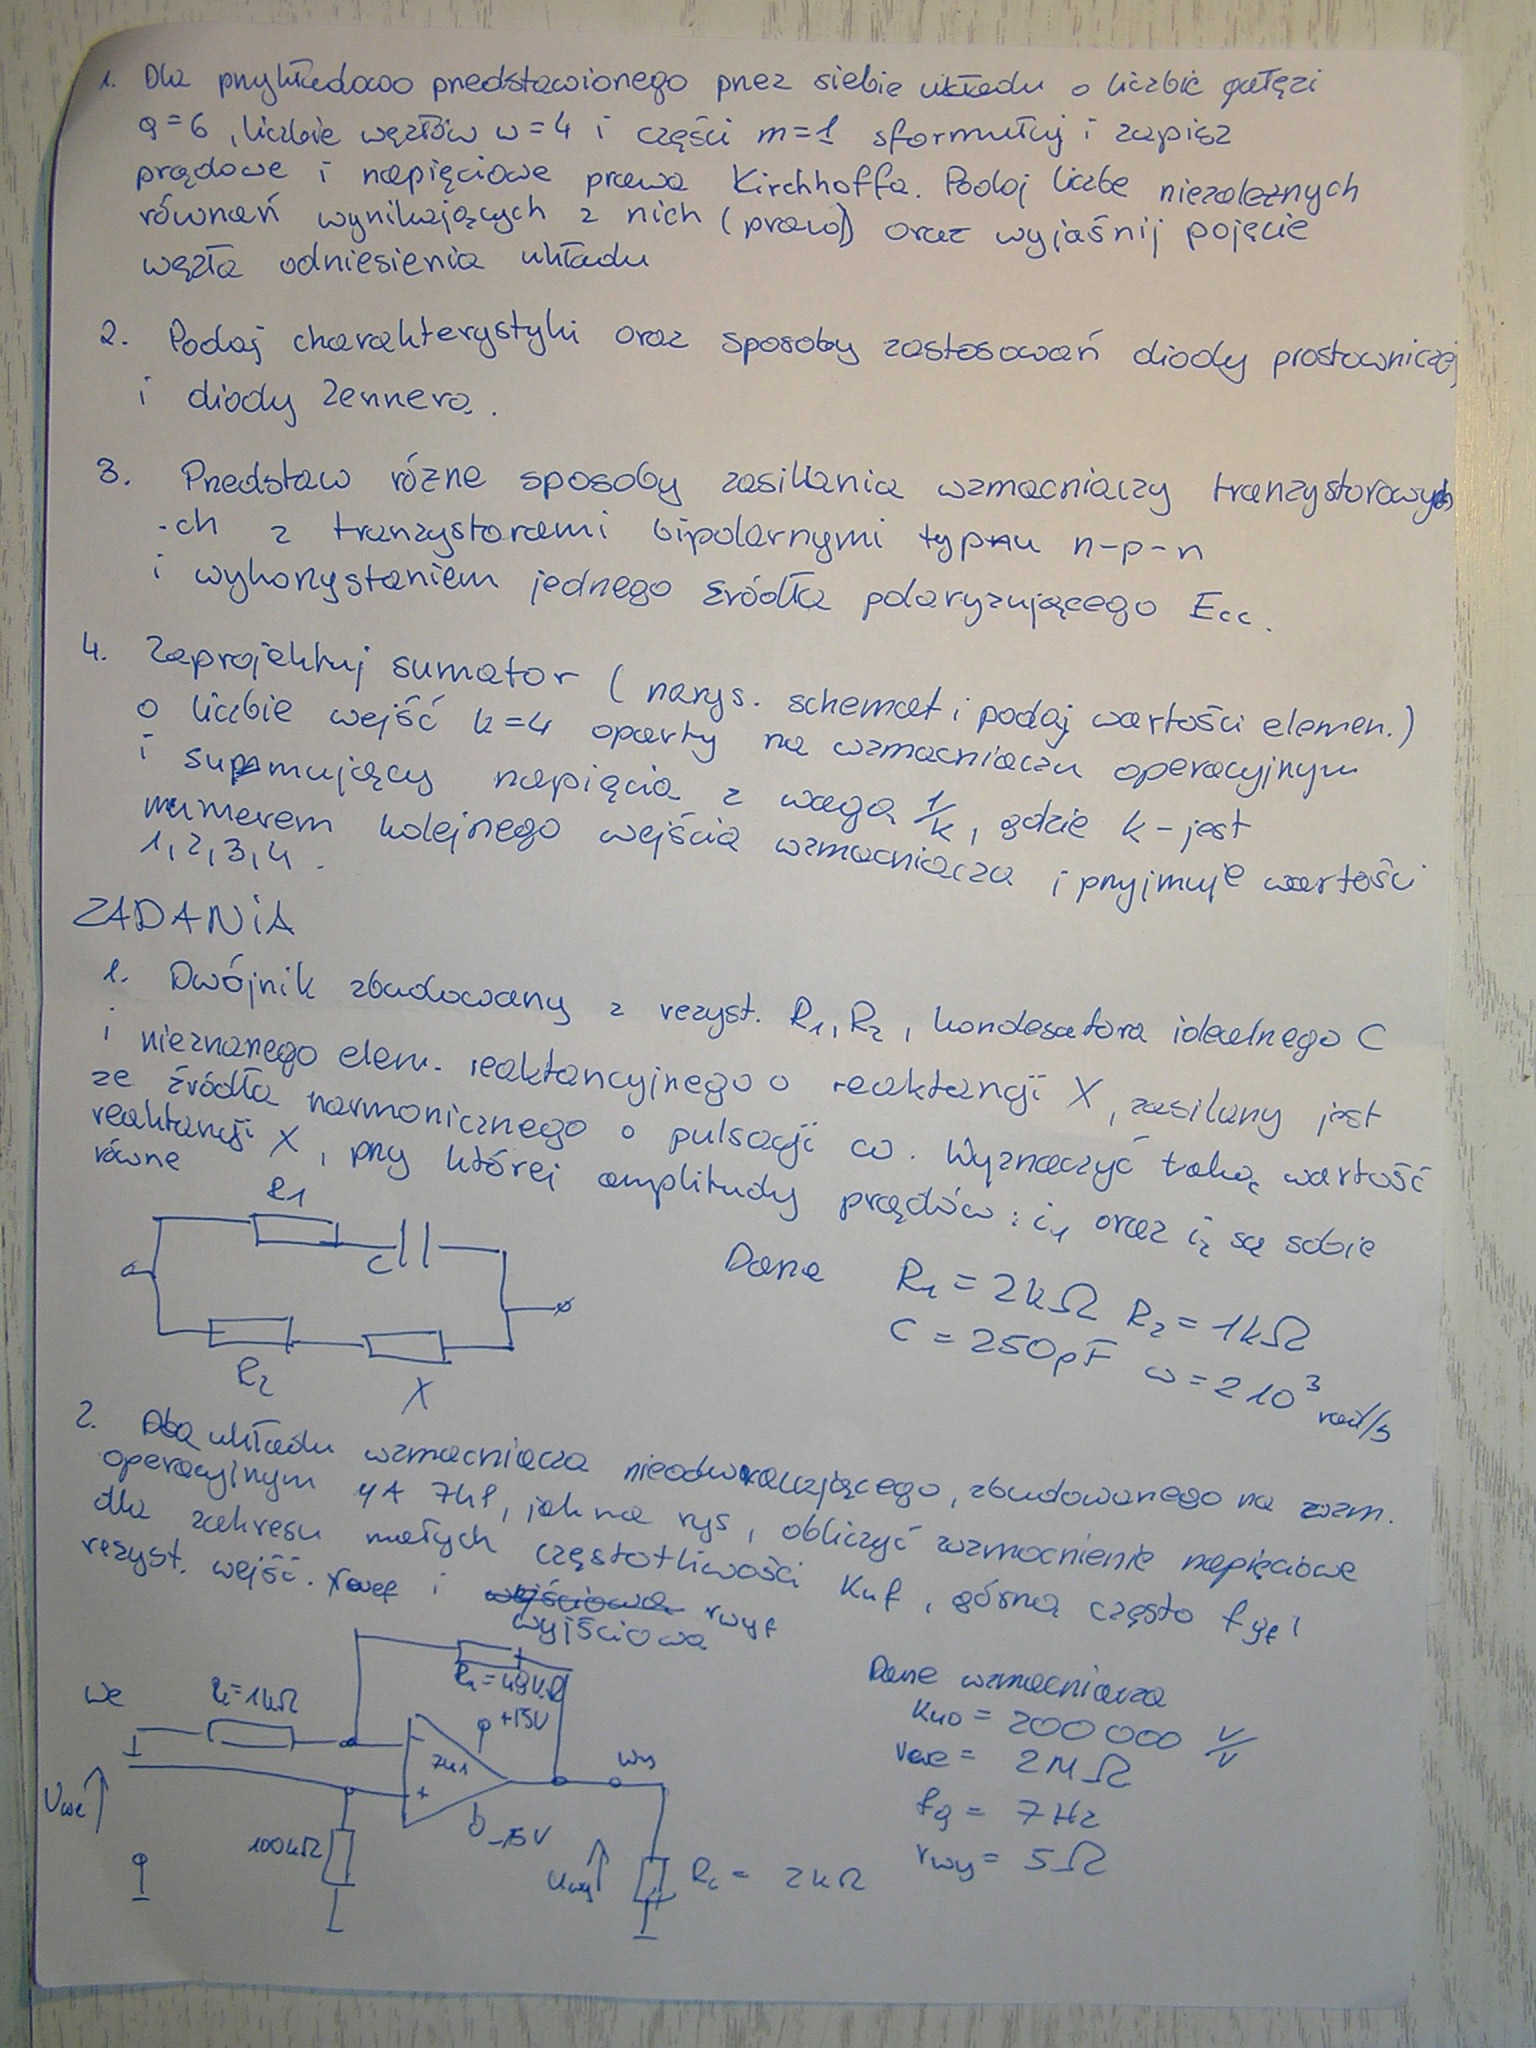 1. Dla przykładowo przedstawionego przez siebie układu o liczbie gałęzi
g=6, liczbie węzłów w=4 i części m=1 sformułuj i zapisz
prądowe i napięciowe prawa Kirchhoffa. Podaj liczbę niezależnych
równań wynikających z nich (praw) oraz wyjaśnij pojęcie
węzła odniesienia układu
2. Podaj charakterystyki oraz sposoby zastosowań diody prostowniczej
i diody Zennera.
3. Przedstaw różne sposoby zasilania wzmacniaczy tranzystorowy
-ch z tranzystorami bipolarnymi typu n-p-n
i wykorzystaniem jednego źródła polaryzującego Ecc.
4. Zaprojektuj sumator (narys. schemat i podaj wartości elemen.)
o liczbie wejść k=4 oparty na wzmacniaczu operacyjnym
i sumujący napięcia z wagą 1/k, gdzie k-jest
numerem kolejnego wejścia wzmacniacza i przyjmuje wartości
1,2,3,4.
ZADANIA
1. Dwójnik zbudowany z rezyst. R1, R2, kondesatora idealnego C
i nieznanego elem. reaktancyjnego o reaktancji X, zasilany jest
ze źródła harmonicznego o pulsacji ω. Wyznaczyć taką wartość
reaktancji X, przy której amplitudy prądów: i1 oraz i2 są sobie
równe
R1
C
R2
X
Dane R1 = 2kΩ R2 = 1kΩ
C = 250pF ω = 2 10³ rad/s
2. Dla układu wzmacniacza nieodwracającego, zbudowanego na wzm.
operacyjnym μA 741, jak na rys, obliczyć wzmocnienie napięciowe
dla zakresu małych częstotliwości Kuf, górną często fgf i
rezyst. wejść. rwef i rwyf
wyjściową
We
R=1kΩ
R2=49kΩ
+15V
741
-
+
-15V
Wy
Uwe
100kΩ
Uwy
RL = 2kΩ
Dane wzmacniacza
Kuo = 200 000 V/V
rwe = 2MΩ
fg = 7Hz
rwy = 5Ω